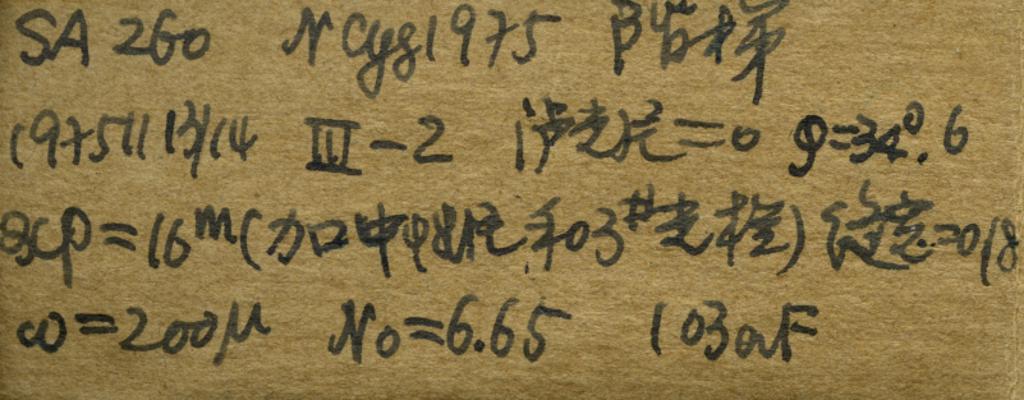 SA 260 N Cyg 1975 阶梯
1975 11 13/14 III-2 滤光片=0 φ=34°.6
exp=16m(加口中性和03#光栏) 缝宽=0.18
ω=200μ No=6.65 103aF